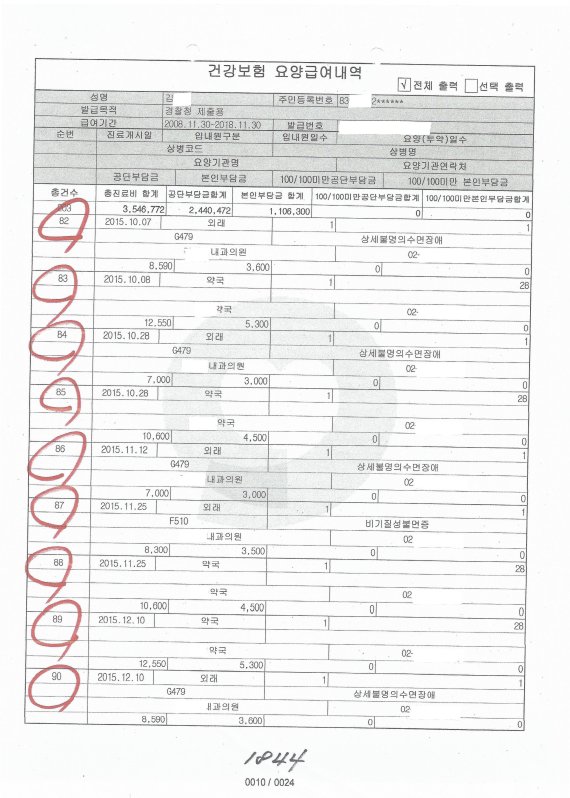 건강보험 요양급여내역
√ 전체 출력 선택 출력
성명 김 주민등록번호 83 2******
발급목적 경찰청 제출용
급여기간 2008.11.30-2018.11.30 발급번호
순번 진료개시일 입내원구분 입내원일수 요양(투약)일수
상병코드 상병명
요양기관명 요양기관연락처
공단부담금 본인부담금 100/100미만공단부담금 100/100미만 본인부담금
총건수 총진료비 합계 공단부담금합계 본인부담금 합계 100/100미만공단부담금합계 100/100미만본인부담금합계
3,546,772 2,440,472 1,106,300 0 0
82 2015.10.07 외래 1 1
G479 상세불명의수면장애
내과의원 02-
8,590 3,600 0 0
83 2015.10.08 약국 1 28
약국 02-
12,550 5,300 0 0
84 2015.10.28 외래 1 1
G479 상세불명의수면장애
내과의원 02-
7,000 3,000 0 0
85 2015.10.28 약국 1 28
약국 02-
10,600 4,500 0 0
86 2015.11.12 외래 1 1
G479 상세불명의수면장애
내과의원 02
7,000 3,000 0 0
87 2015.11.25 외래 1 1
F510 비기질성불면증
내과의원 02
8,300 3,500 0 0
88 2015.11.25 약국 1 28
약국 02
10,600 4,500 0 0
89 2015.12.10 약국 1 28
약국 02-
12,550 5,300 0 0
90 2015.12.10 외래 1 1
G479 상세불명의수면장애
내과의원 02
8,590 3,600 0 0
1844
0010 / 0024